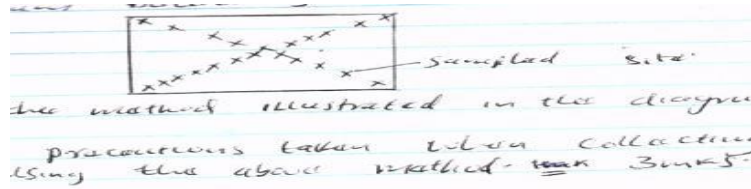 sampled site
the method illustrated in the diagra
precautions taken when collectin
using the above method. 3mks